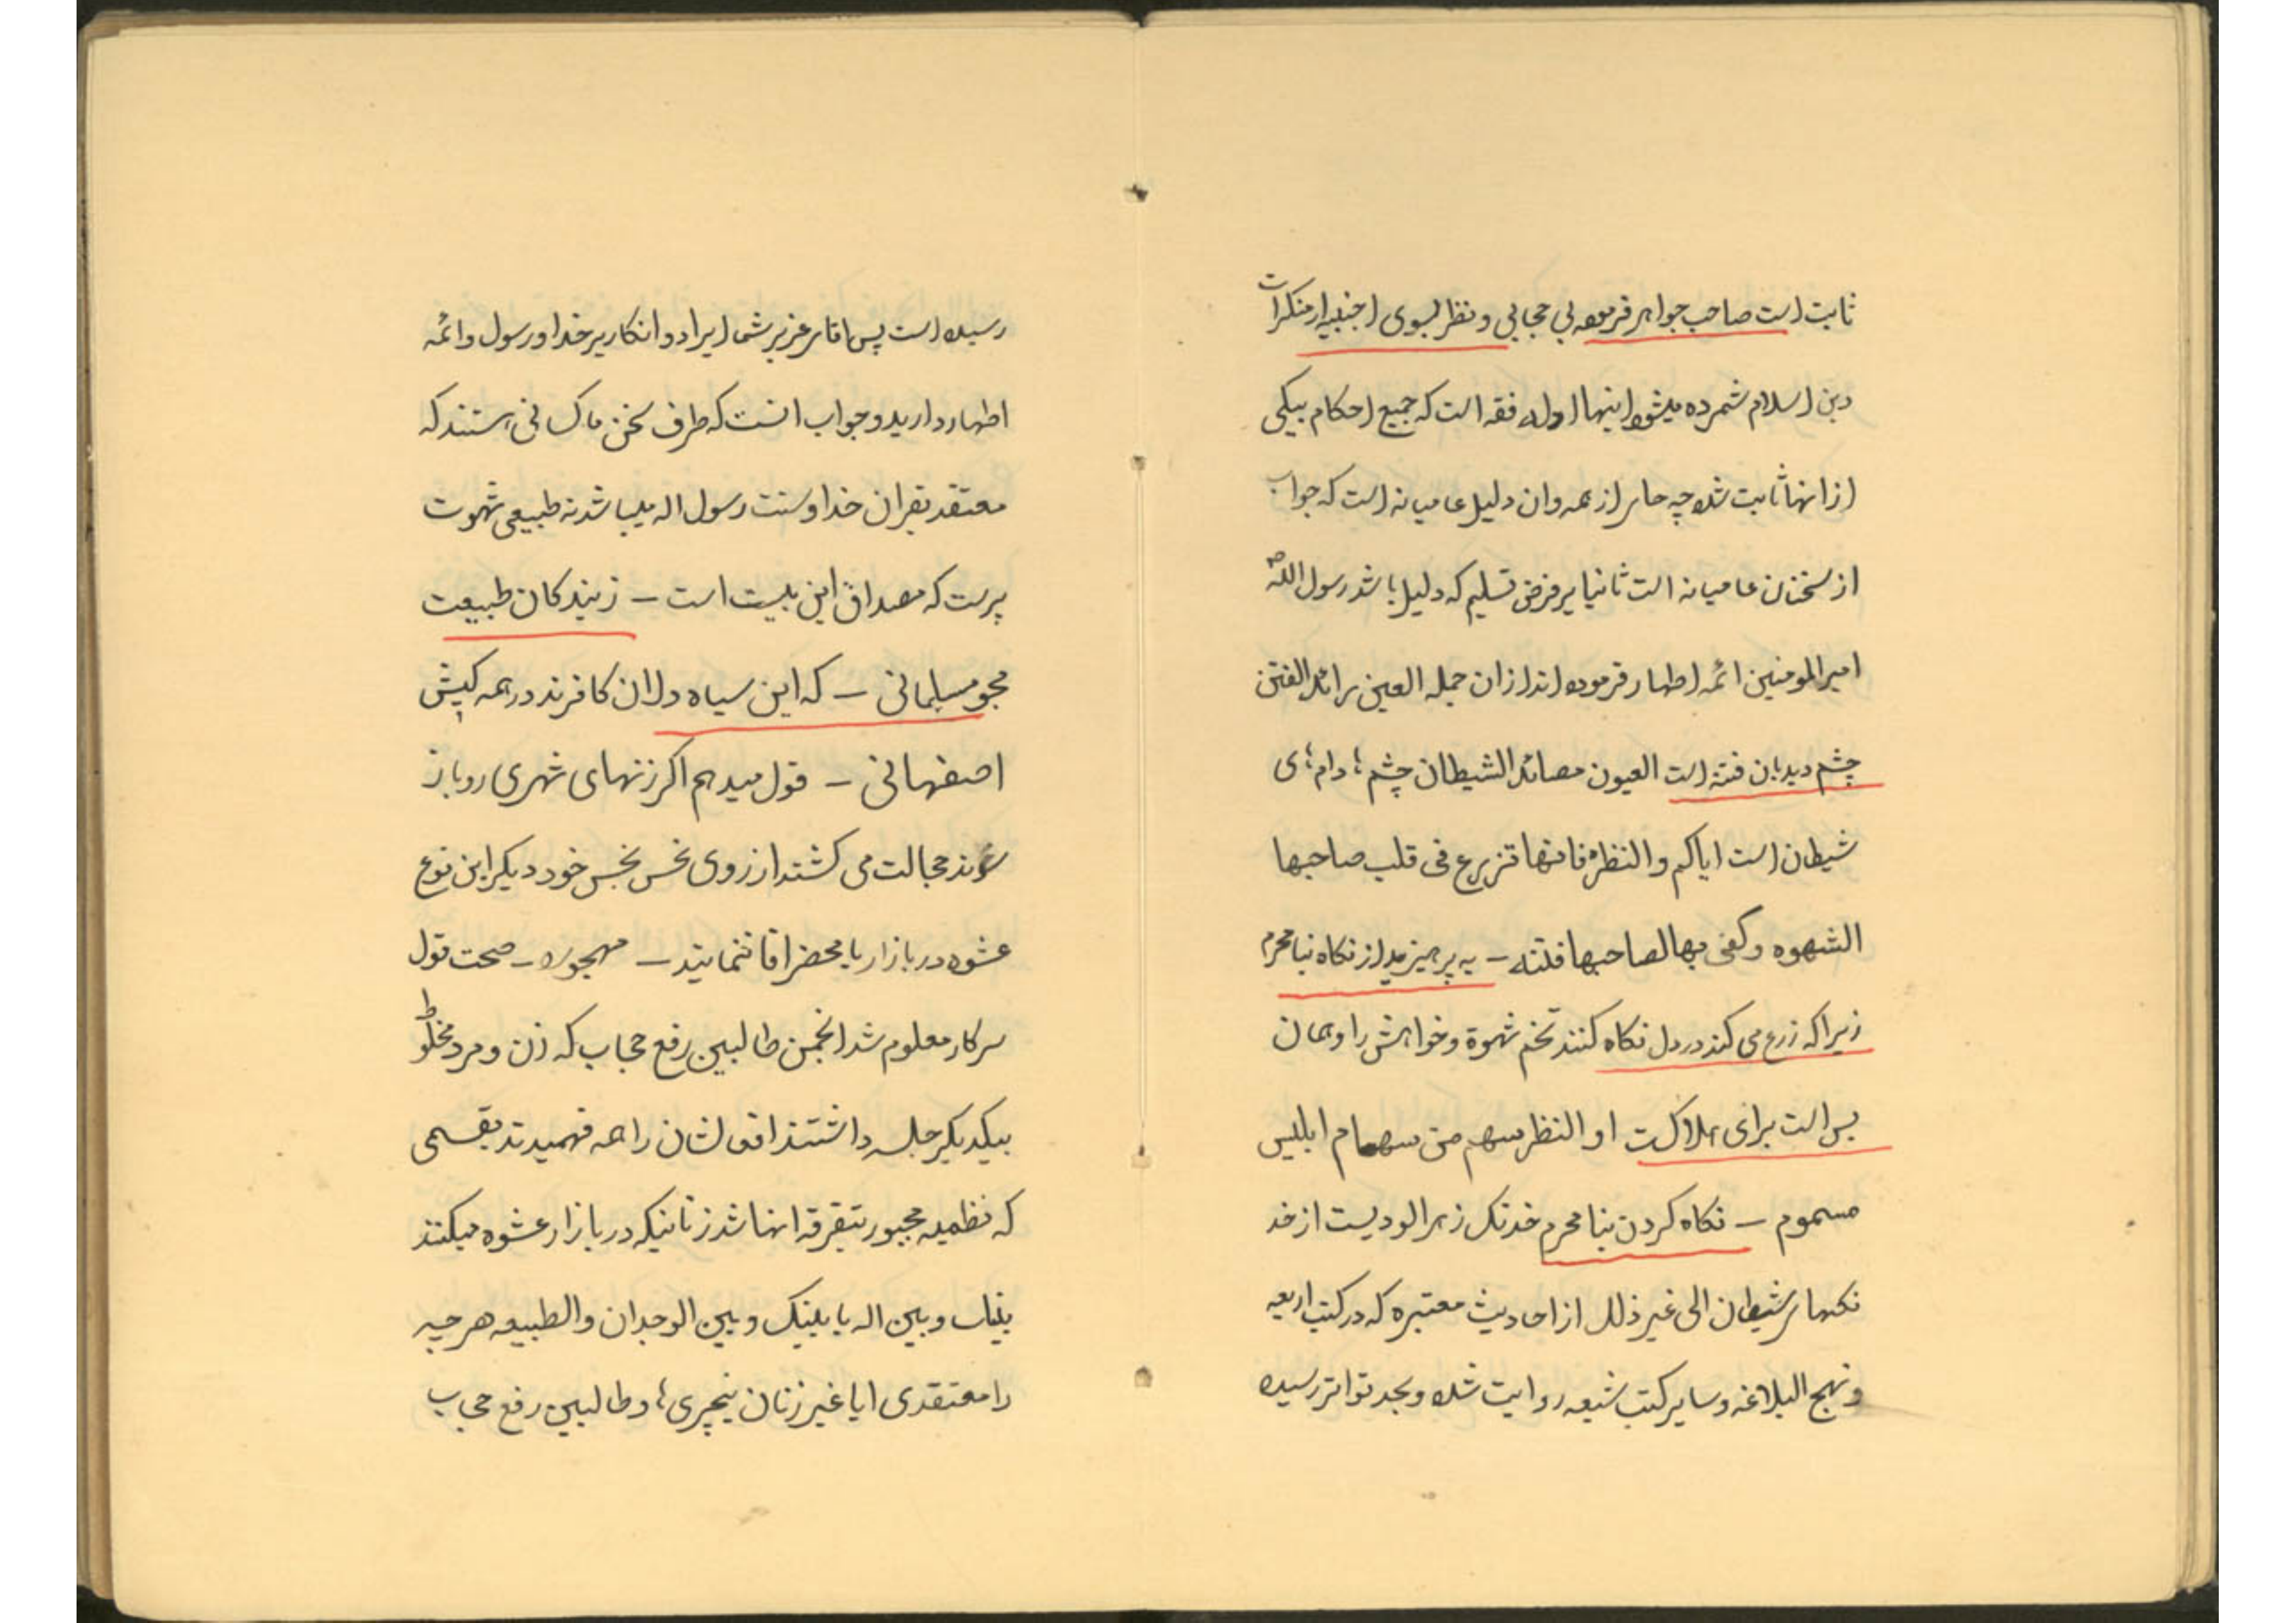 ثابت است صاحب جواهر فرموده بی حجابی و نظر بسوی اجنبیه از منکرات
دین اسلام شمرده میشود اینها ادله فقه است که جمیع احکام بیکی
از انها ثابت شده چه جای از همه وان دلیل عامیانه است که جواب
از سخنان عامیانه است ثانیا بر فرض تسلیم که دلیل باشد رسول الله ص
امیرالمومنین ائمه اظهار فرموده اند از ان جمله العین رائد الفتن
چشم دیدبان فتنه است العیون مصائد الشیطان چشم ها دام های
شیطان است ایاکم والنظره فانها تزرع فی قلب صاحبها
الشهوه وکفی بها لصاحبها فتنه – به پرهیزید از نکاه بنامحرم
زیرا که زرع می کند در دل نکاه کننده تخم شهوة و خواهش را و همان
بس است برای هلاکت او النظر سهم من سهام ابلیس
مسموم – نکاه کردن بنا محرم خدنک زهرالودیست از خد
نکهای شیطان الی غیر ذلک از احادیث معتبره که در کتب اربعه
و نهج البلاغه و سایر کتب شیعه روایت شده و بحد تواتر رسیده
رسیده است پس اقای عزیز شما ایراد و انکار بر خدا و رسول و ائمه
اظهار دارید و جواب انست که طرف سخن ما کسانی هستند که
معتقد بقران خدا و سنت رسول اله میباشد نه طبیعی شهوت
پرست که مصداق این بیست است – زبندکان طبیعت
مجو مسلمانی – که این سیاه دلان کافرند در همه کیش
اصفهانی – قول میدهم اکر زنهای شهری روباز
شوند خجالت می کشند از روی نحس نجس خود دیکر این نوع
عشوه در بازار یا محضر اقا ننمایند – مهجوره – صحت قول
سرکار معلوم شد انجمن طالبین رفع حجاب که زن و مرد مخلوط
بیکدیکر جلسه داشتند افعالشان را همه فهمیدند بقسمی
که نظمیه مجبور بتفرقه انها شد زنانیکه در بازار عشوه میکنند
بینک و بین اله یا بینک و بین الوجدان والطبیعه هر چیه
را معتقدی ایا غیر زنان نیچری ها و طالبین رفع حجاب